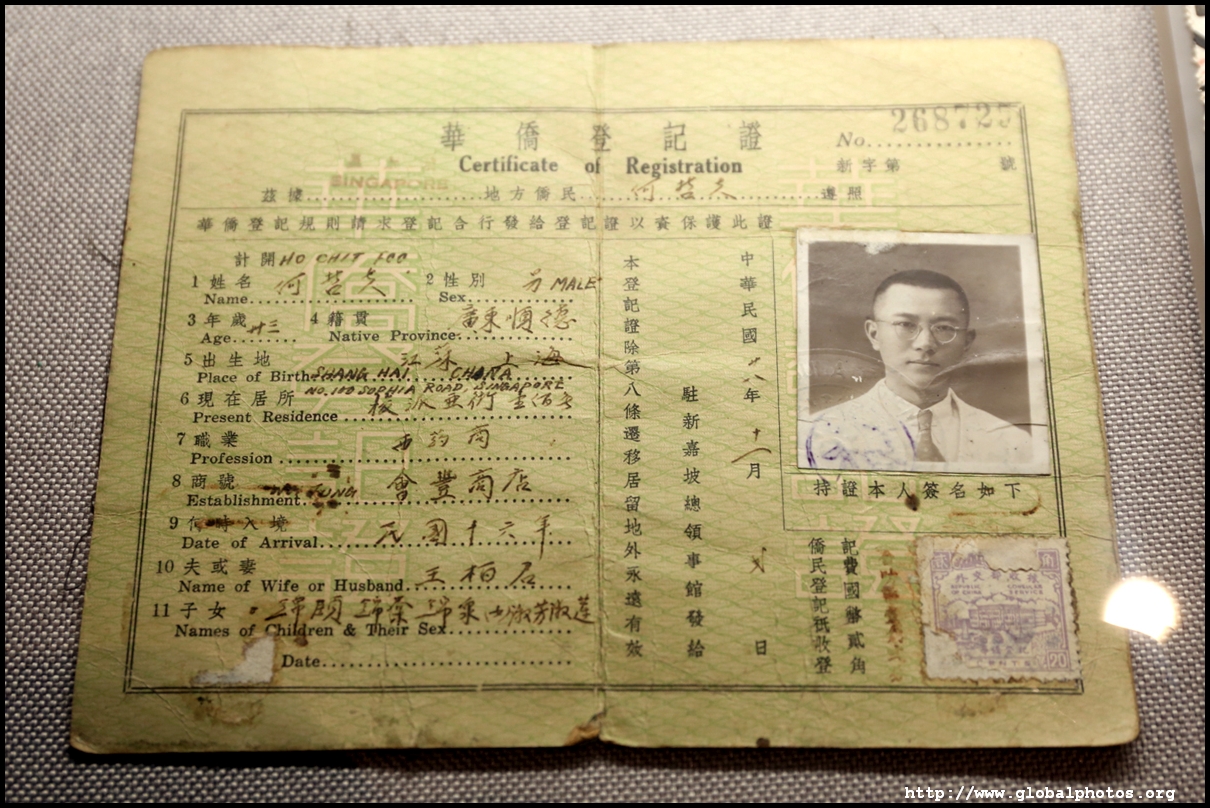 華僑登記證
No. 268725
Certificate of Registration
新字第 號
茲據 SINGAPORE 地方僑民 何哲夫 遵照
華僑登記規則請求登記合行發給登記證以資保護此證
計開 HO CHIT FOO
1 姓名 何哲夫 2 性別 男 MALE
Name Sex
3 年歲 卅三 4 籍貫 廣東順德
Age Native Province
5 出生地 江蘇 上海
Place of Birth SHANG HAI CHINA
NO. 100 SOPHIA ROAD SINGAPORE
6 現在居所
Present Residence
7 職業 西药商
Profession
8 商號 會豐商店
Establishment
9 何時入境 民國十六年
Date of Arrival
10 夫或妻 王柏石
Name of Wife or Husband
11 子女
Names of Children & Their Sex
Date
本登記證除第八條遷移居留地外永遠有效
駐新嘉坡總領事館發給
中華民國廿八年十一月 日
持證本人簽名如下
僑民登記秪收登
記費國幣貳角
外交部
REPUBLIC OF CHINA
CONSULAR SERVICE
20
http://www.globalphotos.org